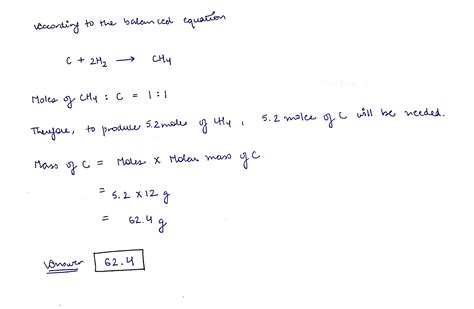 According to the balanced equation
C + 2H₂ ⟶ CH₄
Moles of CH₄ : C = 1 : 1
Therefore, to produce 5.2 mole of CH₄, 5.2 moles of C will be needed.
Mass of C = Moles × Molar mass of C
= 5.2 × 12 g
= 62.4 g
Answer 62.4